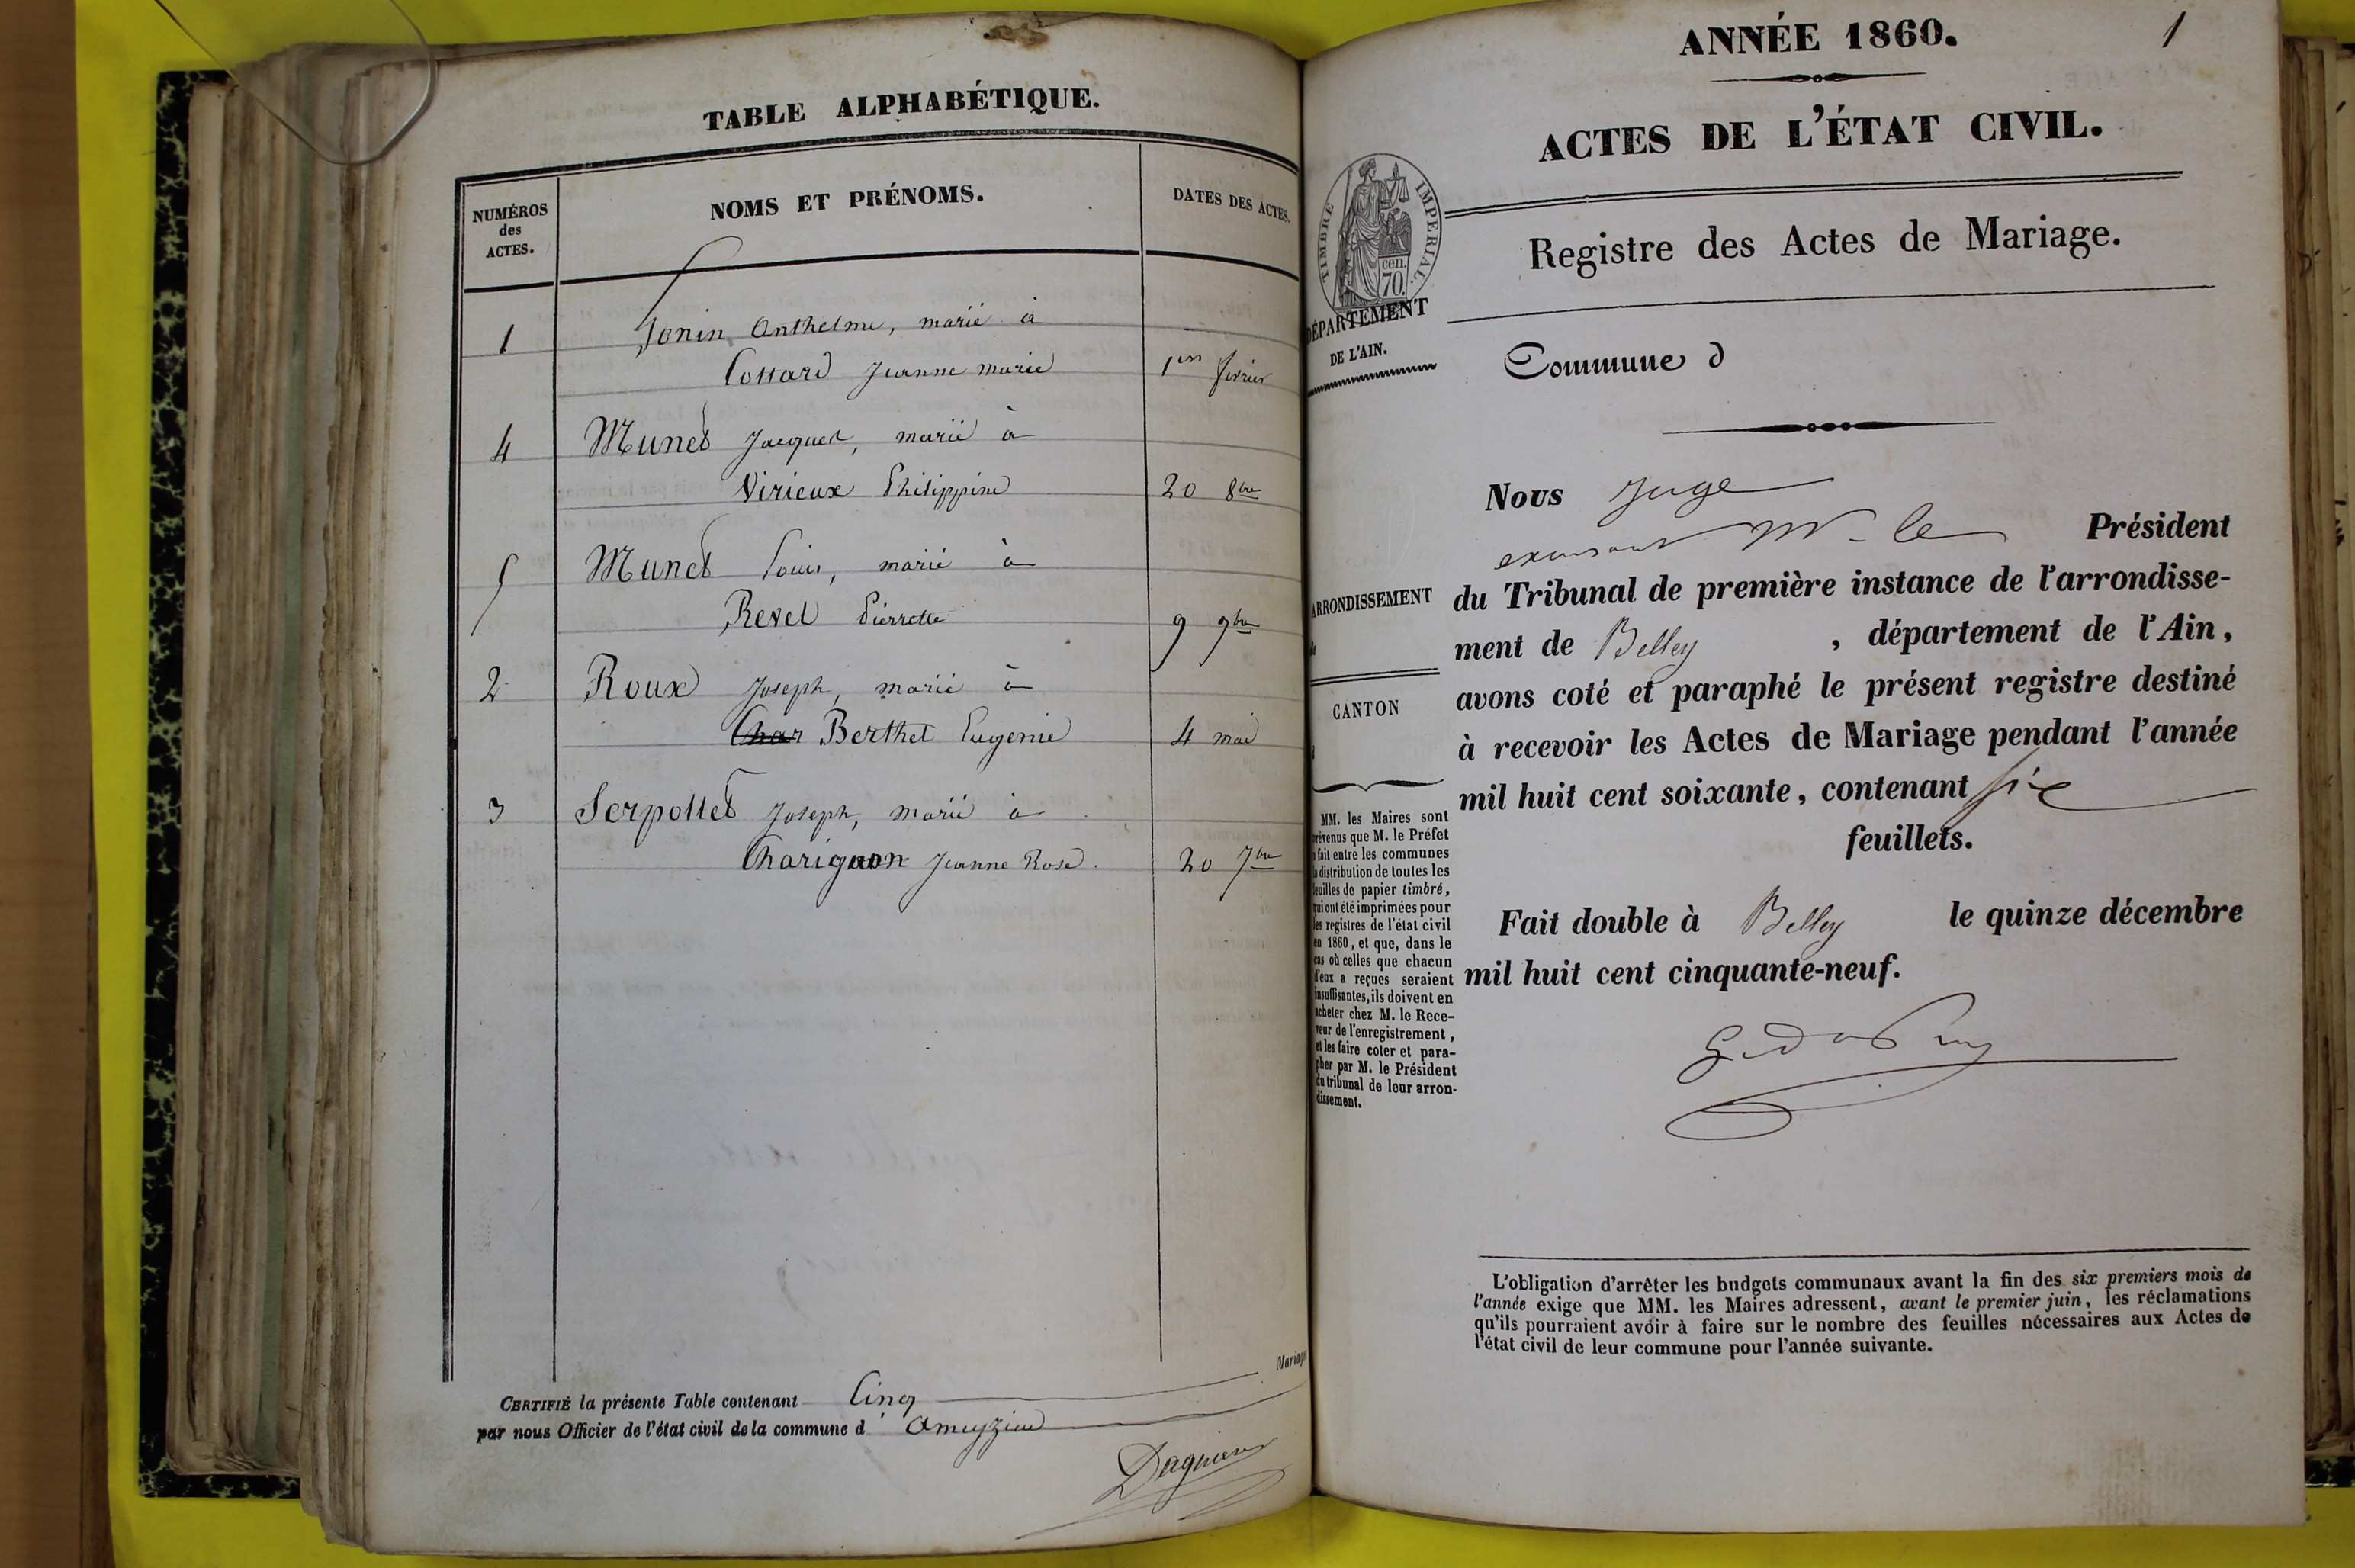 TABLE ALPHABÉTIQUE.
NUMÉROS
des
ACTES.
NOMS ET PRÉNOMS.
DATES DES ACTES.
1 Jonin Anthelme, marié à
Cottard Jeanne marie 1er février
4 Munet Jacques, marié à
Virieux Philippine 20 8bre
5 Munet Louis, marié à
Revel Pierrette 9 9bre
2 Roux Joseph, marié à
Char Berthet Eugenie 4 mai
3 Serpollet Joseph, marié à
Charignon Jeanne Rose. 20 7bre
Mariages
CERTIFIÉ la présente Table contenant Cinq
par nous Officier de l'état civil de la commune d'Ameyzieu
ANNÉE 1860.
1
ACTES DE L'ÉTAT CIVIL.
TIMBRE IMPERIAL
70
cen.
Registre des Actes de Mariage.
DÉPARTEMENT
DE L'AIN.
Commune d
Nous Juge
M. le Président
ARRONDISSEMENT
du Tribunal de première instance de l'arrondisse-
ment de Belley, département de l'Ain,
CANTON
avons coté et paraphé le présent registre destiné
à recevoir les Actes de Mariage pendant l'année
mil huit cent soixante, contenant six
feuillets.
Fait double à Belley le quinze décembre
mil huit cent cinquante-neuf.
MM. les Maires sont
prévenus que M. le Préfet
a fait entre les communes
la distribution de toutes les
feuilles de papier timbré,
qui ont été imprimées pour
les registres de l'état civil
en 1860, et que, dans le
cas où celles que chacun
d'eux a reçues seraient
insuffisantes, ils doivent en
acheter chez M. le Rece-
veur de l'enregistrement,
et les faire coter et para-
pher par M. le Président
du tribunal de leur arron-
dissement.
L'obligation d'arrêter les budgets communaux avant la fin des six premiers mois de
l'année exige que MM. les Maires adressent, avant le premier juin, les réclamations
qu'ils pourraient avoir à faire sur le nombre des feuilles nécessaires aux Actes de
l'état civil de leur commune pour l'année suivante.